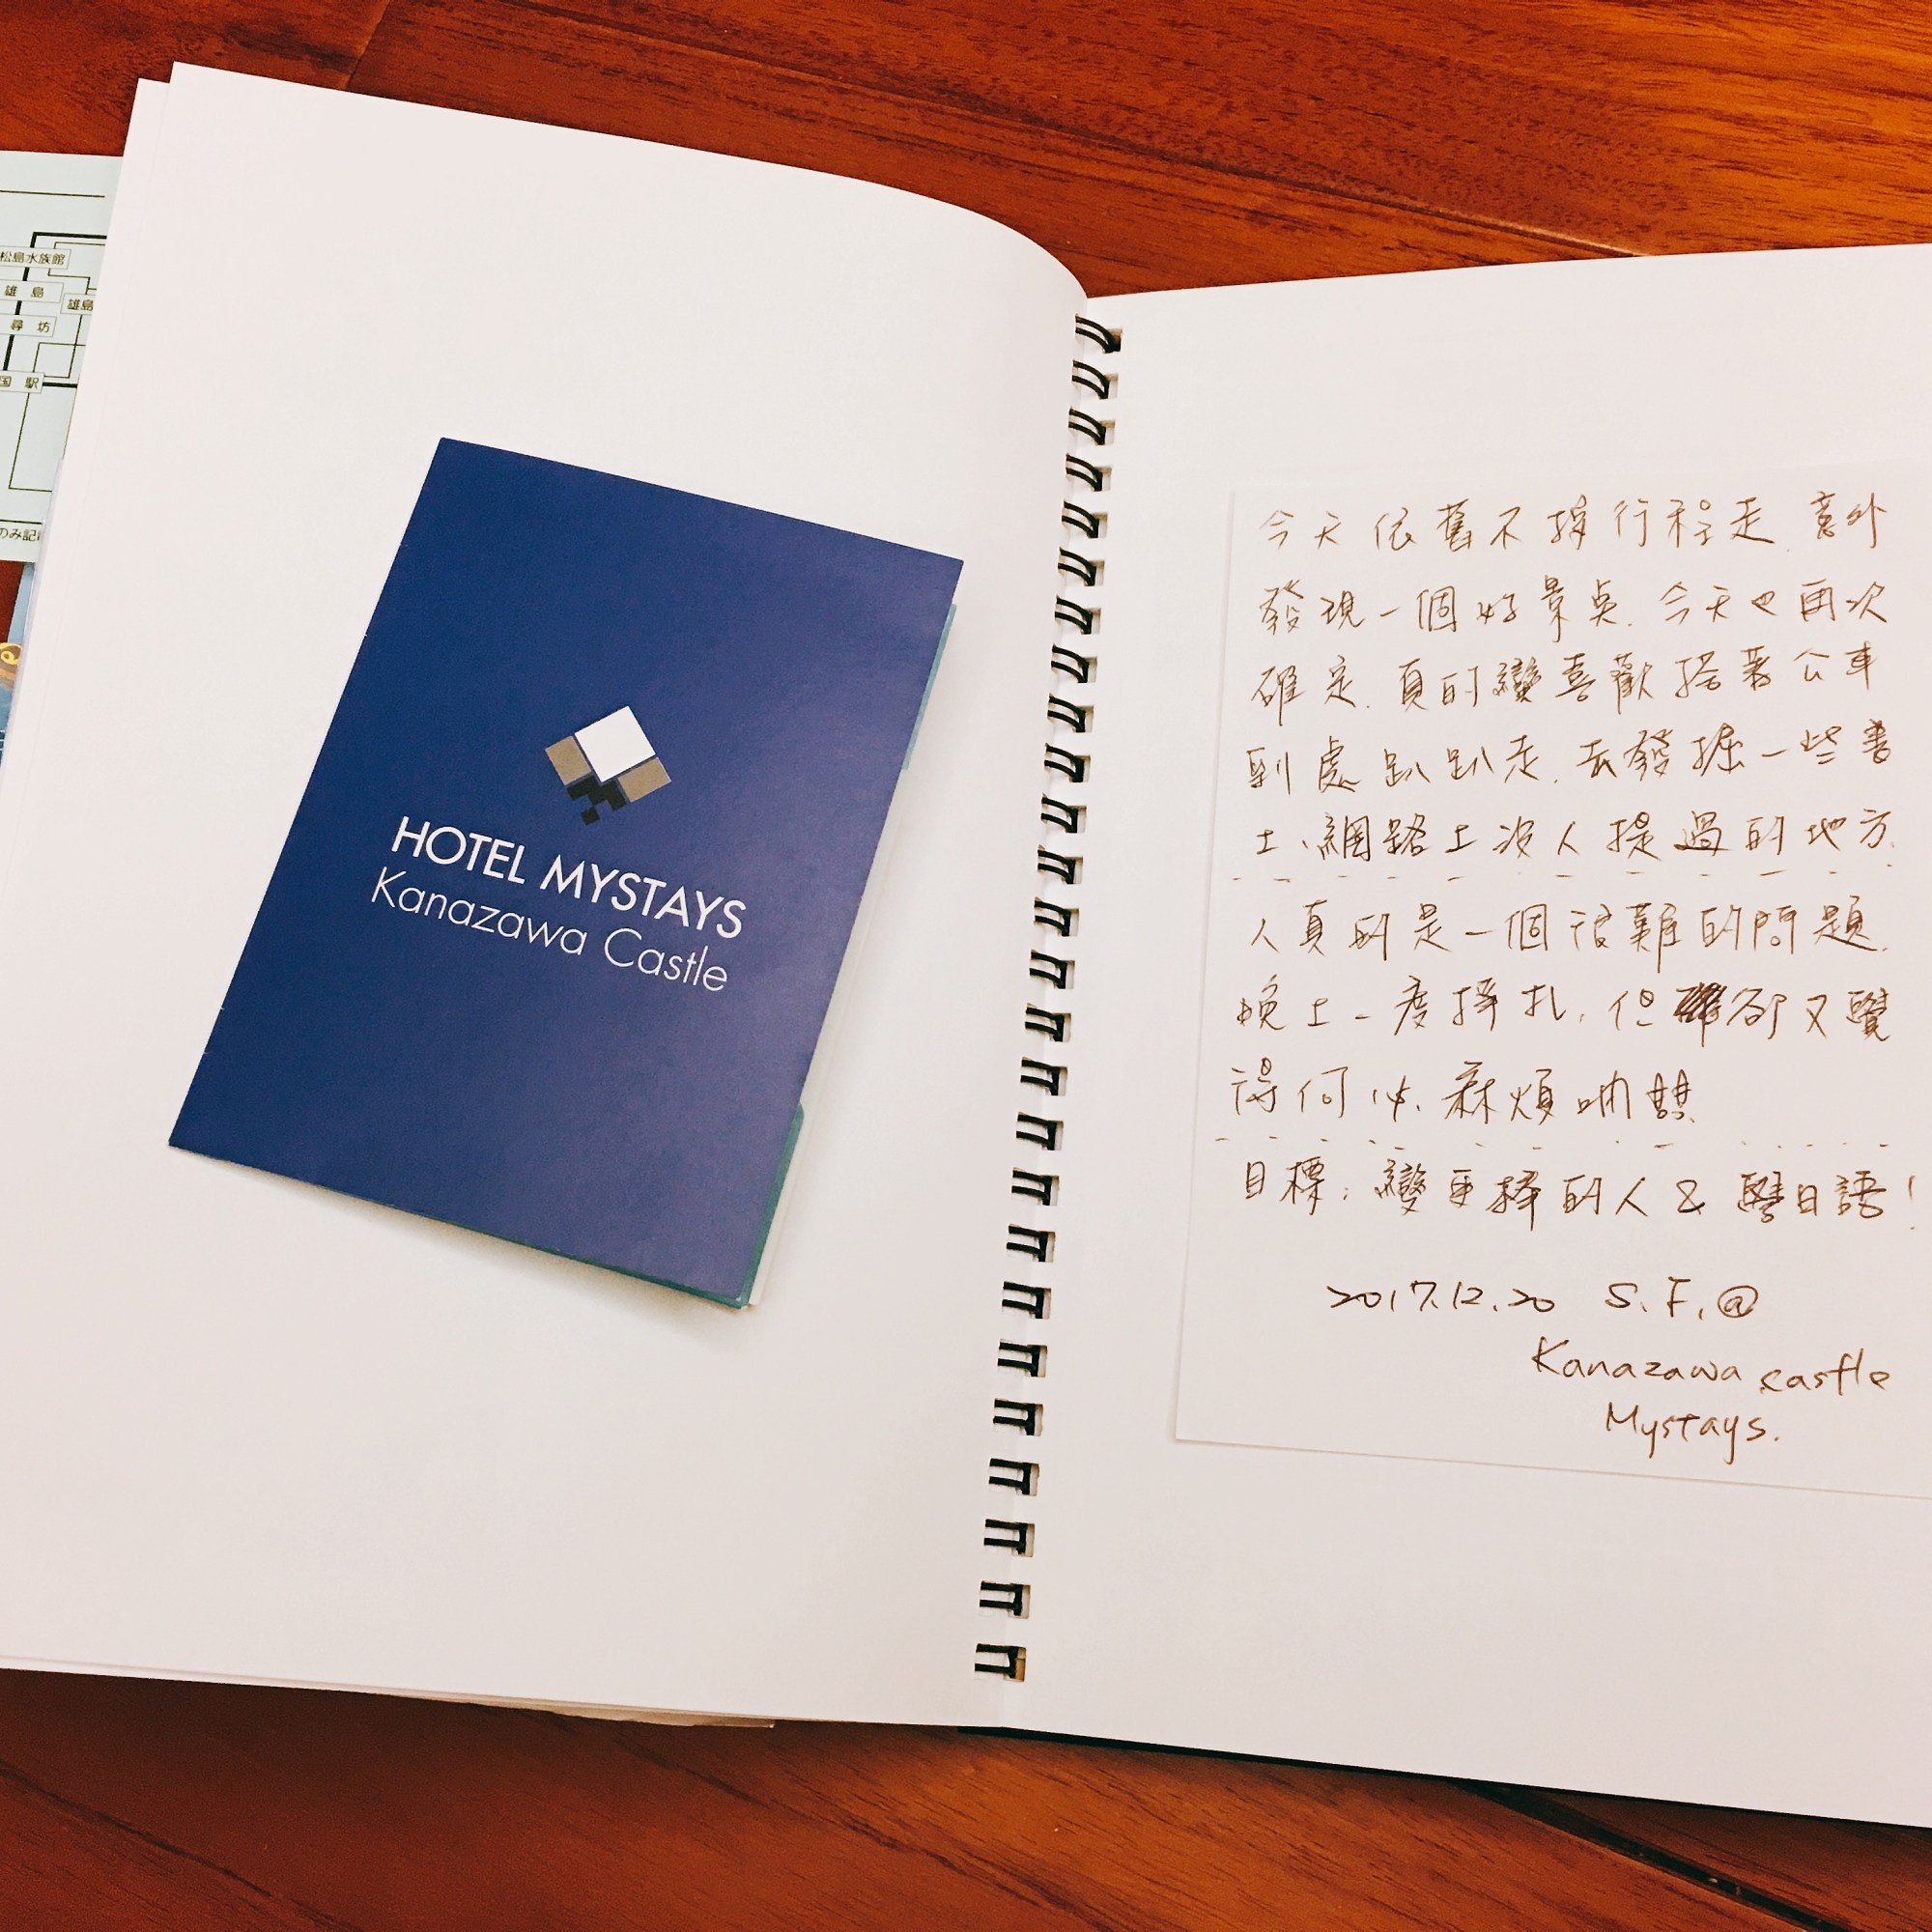 松島水族館
雄 島
雄島
尋 坊
国 駅
のみ記
HOTEL MYSTAYS
Kanazawa Castle
今天依舊不按行程走.意外
發現一個好景点.今天也再次
確定.真的蠻喜歡搭著公車
到處趴趴走.去發掘一些書
上、網路上沒人提過的地方.
人真的是一個很難的問題.
晚上一度掙扎.但卻又覺
得何必麻煩呢
目標:變更棒的人 & 學日語!
2017.12.20 S.F.@
Kanazawa castle
Mystays.